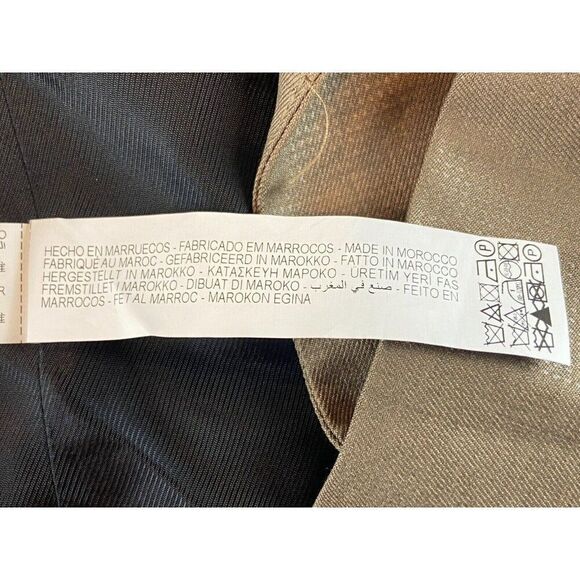 HECHO EN MARRUECOS - FABRICADO EM MARROCOS - MADE IN MOROCCO
FABRIQUÉ AU MAROC - GEFABRICEERD IN MAROKKO - FATTO IN MAROCCO
HERGESTELLT IN MAROKKO - ΚΑΤΑΣΚΕΥΗ ΜΑΡΟΚΟ - ÜRETİM YERİ FAS
FREMSTILLET I MAROKKO - DIBUAT DI MAROKO - صنع في المغرب - FEITO EN
MARROCOS - FET AL MARROC - MAROKON EGINA